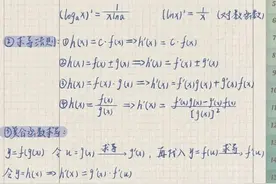 (logₐx)' = 1/(xlna) (lnx)' = 1/x (对数函数)
② 求导法则: ① h(x) = c·f(x) ⟹ h'(x) = c·f'(x)
② h(x) = f(x) ± g(x) ⟹ h'(x) = f'(x) ± g'(x)
③ h(x) = f(x)·g(x) ⟹ h'(x) = f'(x)g(x) + g'(x)f(x)
④ h(x) = f(x)/g(x) ⟹ h'(x) = (f'(x)g(x) - g'(x)f(x))/[g(x)]²
③ 复合函数求导:
y = f(g(x)) 令 u = g(x) 求导→ g'(x), 再代入 y = f(u) 求导→ f'(u)
令 y = h(x) ⟹ h'(x) = g'(x)·f'(u)